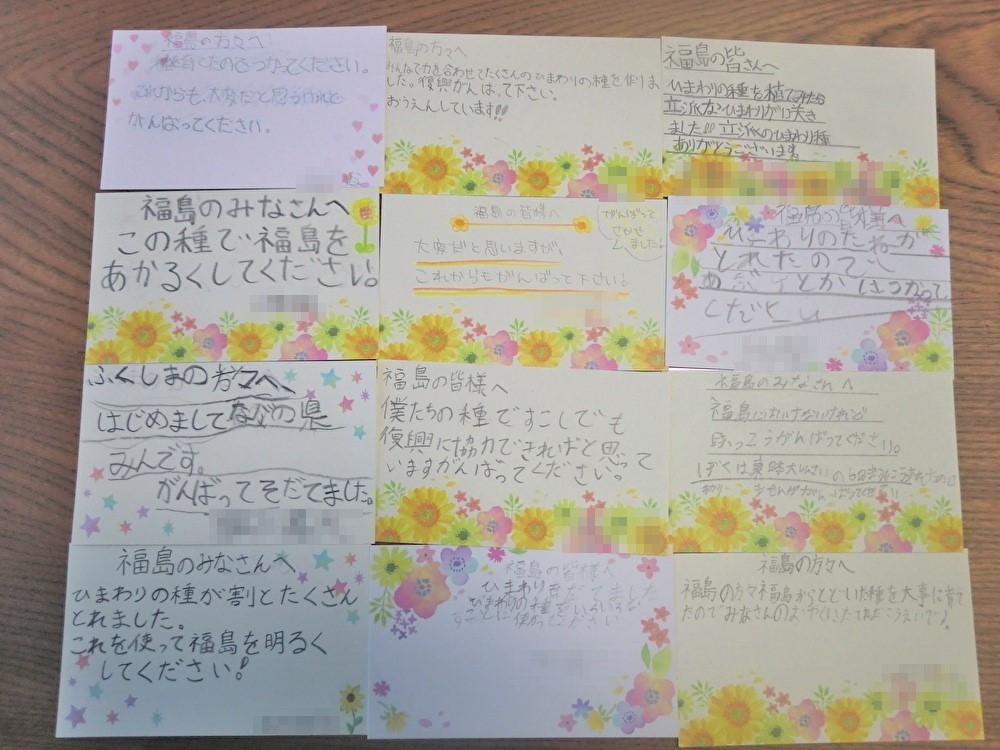 福島の方々へ
種を育てたのでつかってください。
これからも、大変だと思うけれど
がんばってください。
福島の方々へ
みんなで力を合わせてたくさんのひまわりの種を作りま
した。復興がんばって下さい。
おうえんしています!!
福島の皆さんへ
ひまわりの種を植えてみたら
立派なひまわりがい咲き
ました!!立派のひまわり種
ありがとうございます
福島のみなさんへ
この種で福島を
あかるくしてください!
福島の皆様へ
がんばって
さかせ
ました!
大変だと思いますが、
これからもがんばって下さい!
福島の皆様へ
ひまわりのたねが
とれたので
とかにつかって
ください
ふくしまの方々へ、
はじめまして の県
みんです。
がんばってそだてました。
福島の皆様へ
僕たちの種ですこしでも
復興に協力できればと思って
いますがんばってください。
福島のみなさんへ
福島にはいけないけれど
ふっこうがんばってください。
ぼくは東日本大しんさいの
福島のみなさんへ
ひまわりの種が割とたくさん
とれました。
これを使って福島を明るく
してください!
福島の皆様へ
ひまわりをそだてました
ひまわりの種をいろいろな
ことに使ってください
福島の方々へ
福島の方々福島からとどいた種を大事に育て
たのでみなさんのおやくにたてればこうえいです。